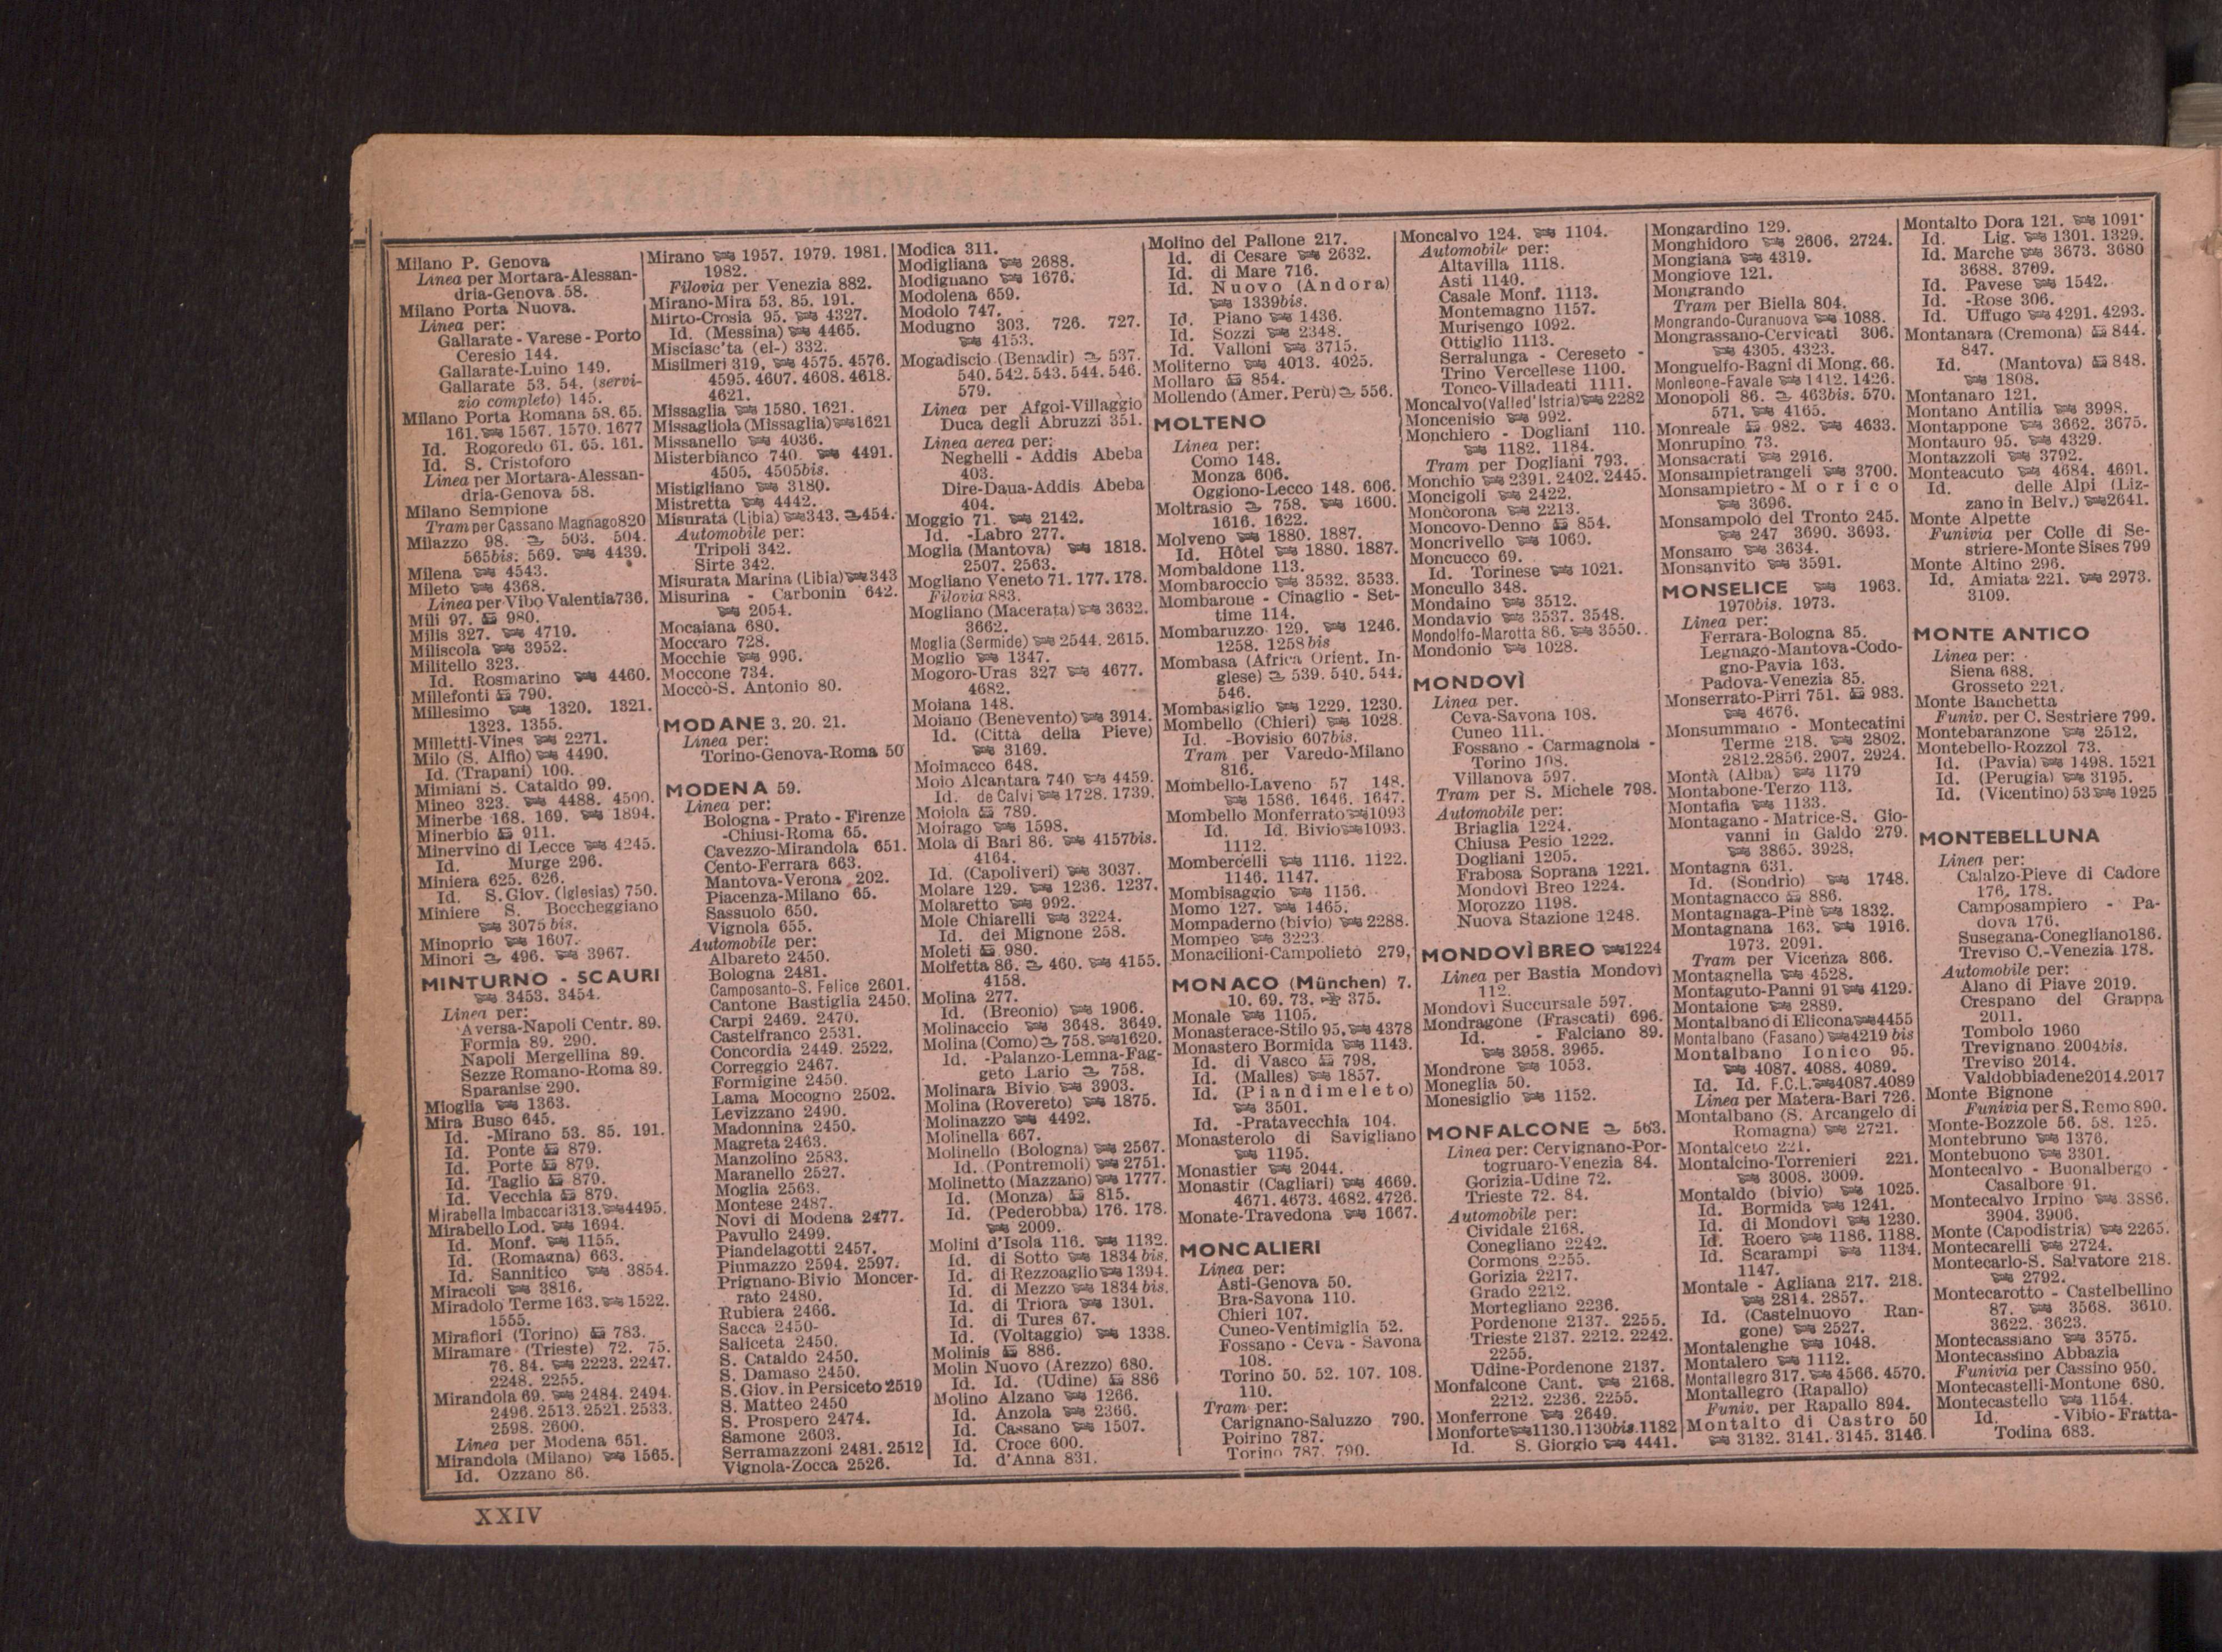 Milano P. Genova
Linea per Mortara-Alessan-
dria-Genova 58.
Milano Porta Nuova.
Linea per:
Gallarate - Varese - Porto
Ceresio 144.
Gallarate-Luino 149.
Gallarate 53. 54. (servi-
zio completo) 145.
Milano Porta Romana 58. 65.
161. 1567. 1570. 1677
Id. Rogoredo 61. 65. 161.
Id. S. Cristoforo
Linea per Mortara-Alessan-
dria-Genova 58.
Milano Sempione
Tram per Cassano Magnago 820
Milazzo 98. 503. 504.
565bis. 569. 4439.
Milena 4543.
Mileto 4368.
Linea per Vibo Valentia 736.
Mili 97. 980.
Milis 327. 4719.
Miliscola 3952.
Militello 323.
Id. Rosmarino 4460.
Millefonti 790.
Millesimo 1320. 1321.
1323. 1355.
Milletti-Vines 2271.
Milo (S. Alfio) 4490.
Id. (Trapani) 100.
Mimiani S. Cataldo 99.
Mineo 323. 4488. 4500.
Minerbe 168. 169. 1894.
Minerbio 911.
Minervino di Lecce 4245.
Id. Murge 296.
Miniera 625. 626.
Id. S. Giov. (Iglesias) 750.
Miniere S. Boccheggiano
3075 bis.
Minoprio 1607.
Minori 496. 3967.
MINTURNO - SCAURI
3453. 3454.
Linea per:
Aversa-Napoli Centr. 89.
Formia 89. 290.
Napoli Mergellina 89.
Sezze Romano-Roma 89.
Sparanise 290.
Mioglia 1363.
Mira Buso 645.
Id. -Mirano 53. 85. 191.
Id. Ponte 879.
Id. Porte 879.
Id. Taglio 879.
Id. Vecchia 879.
Mirabella Imbaccari 313. 4495.
Mirabello Lod. 1694.
Id. Monf. 1155.
Id. (Romagna) 663.
Id. Sannitico 3854.
Miracoli 3816.
Miradolo Terme 163. 1522.
1555.
Mirafiori (Torino) 783.
Miramare (Trieste) 72. 75.
76. 84. 2223. 2247.
2248. 2255.
Mirandola 69. 2484. 2494.
2496. 2513. 2521. 2533.
2598. 2600.
Linea per Modena 651.
Mirandola (Milano) 1565.
Id. Ozzano 86.
Mirano 1957. 1979. 1981.
1982.
Filovia per Venezia 882.
Mirano-Mira 53. 85. 191.
Mirto-Crosia 95. 4327.
Id. (Messina) 4465.
Misciasc'ta (el-) 332.
Misilmeri 319. 4575. 4576.
4595. 4607. 4608. 4618.
4621.
Missaglia 1580. 1621.
Missagliola (Missaglia) 1621
Missanello 4036.
Misterbianco 740. 4491.
4505. 4505bis.
Mistigliano 3180.
Mistretta 4442.
Misurata (Libia) 343. 454.
Automobile per:
Tripoli 342.
Sirte 342.
Misurata Marina (Libia) 343
Misurina - Carbonin 642.
2054.
Mocaiana 680.
Moccaro 728.
Mocchie 996.
Moccone 734.
Moccò-S. Antonio 80.
MODANE 3. 20. 21.
Linea per:
Torino-Genova-Roma 50
MODENA 59.
Linea per:
Bologna - Prato - Firenze
-Chiusi-Roma 65.
Cavezzo-Mirandola 651.
Cento-Ferrara 663.
Mantova-Verona 202.
Piacenza-Milano 65.
Sassuolo 650.
Vignola 655.
Automobile per:
Albareto 2450.
Bologna 2481.
Camposanto-S. Felice 2601.
Cantone Bastiglia 2450.
Carpi 2469. 2470.
Castelfranco 2531.
Concordia 2449. 2522.
Correggio 2467.
Formigine 2450.
Lama Mocogno 2502.
Levizzano 2490.
Madonnina 2450.
Magreta 2463.
Manzolino 2583.
Maranello 2527.
Moglia 2563.
Montese 2487.
Novi di Modena 2477.
Pavullo 2499.
Piandelagotti 2457.
Piumazzo 2594. 2597.
Prignano-Bivio Moncer-
rato 2480.
Rubiera 2466.
Sacca 2450-
Saliceta 2450.
S. Cataldo 2450.
S. Damaso 2450.
S. Giov. in Persiceto 2519
S. Matteo 2450
S. Prospero 2474.
Samone 2603.
Serramazzoni 2481. 2512
Vignola-Zocca 2526.
Modica 311.
Modigliana 2688.
Modignano 1676.
Modolena 659.
Modolo 747.
Modugno 303. 726. 727.
4153.
Mogadiscio (Benadir) 537.
540. 542. 543. 544. 546.
579.
Linea per Afgoi-Villaggio
Duca degli Abruzzi 351.
Linea aerea per:
Neghelli - Addis Abeba
403.
Dire-Daua-Addis Abeba
404.
Moggio 71. 2142.
Id. -Labro 277.
Moglia (Mantova) 1818.
2507. 2563.
Mogliano Veneto 71. 177. 178.
Filovia 883.
Mogliano (Macerata) 3632.
3662.
Moglia (Sermide) 2544. 2615.
Moglio 1347.
Mogoro-Uras 327 4677.
4682.
Moiana 148.
Moiano (Benevento) 3914.
Id. (Città della Pieve)
3169.
Moimacco 648.
Moio Alcantara 740 4459.
Id. de Calvi 1728. 1739.
Moiola 789.
Moirago 1598.
Mola di Bari 86. 4157bis.
4164.
Id. (Capoliveri) 3037.
Molare 129. 1236. 1237.
Molaretto 992.
Mole Chiarelli 3224.
Id. dei Mignone 258.
Moleti 980.
Molfetta 86. 460. 4155.
4158.
Molina 277.
Id. (Breonio) 1906.
Molinaccio 3648. 3649.
Molina (Como) 758. 1620.
Id. -Palanzo-Lemna-Fag-
geto Lario 758.
Molinara Bivio 3903.
Molina (Rovereto) 1875.
Molinazzo 4492.
Molinella 667.
Molinello (Bologna) 2567.
Id. (Pontremoli) 2751.
Molinetto (Mazzano) 1777.
Id. (Monza) 815.
Id. (Pederobba) 176. 178.
2009.
Molini d'Isola 116. 1132.
Id. di Sotto 1834 bis.
Id. di Rezzoaglio 1394.
Id. di Mezzo 1834 bis.
Id. di Triora 1301.
Id. di Tures 67.
Id. (Voltaggio) 1338.
Molinis 886.
Molin Nuovo (Arezzo) 680.
Id. Id. (Udine) 886
Molino Alzano 1266.
Id. Anzola 2366.
Id. Cassano 1507.
Id. Croce 600.
Id. d'Anna 831.
Molino del Pallone 217.
Id. di Cesare 2632.
Id. di Mare 716.
Id. Nuovo (Andora)
1339bis.
Id. Piano 1436.
Id. Sozzi 2348.
Id. Valloni 3715.
Moliterno 4013. 4025.
Mollaro 854.
Mollendo (Amer. Perù) 556.
MOLTENO
Linea per:
Como 148.
Monza 606.
Oggiono-Lecco 148. 606.
Moltrasio 758. 1600.
1616. 1622.
Molveno 1880. 1887.
Id. Hôtel 1880. 1887.
Mombaldone 113.
Mombaroccio 3532. 3533.
Mombarone - Cinaglio - Set-
time 114.
Mombaruzzo 129. 1246.
1258. 1258bis
Mombasa (Africa Orient. In-
glese) 539. 540. 544.
546.
Mombasiglio 1229. 1230.
Mombello (Chieri) 1028.
Id. -Bovisio 607bis.
Tram per Varedo-Milano
816.
Mombello-Laveno 57 148.
1586. 1646. 1647.
Mombello Monferrato 1093
Id. Id. Bivio 1093.
1112.
Mombercelli 1116. 1122.
1146. 1147.
Mombisaggio 1156.
Momo 127. 1465.
Mompaderno (bivio) 2288.
Mompeo 3223
Monacilioni-Campolieto 279,
MONACO (München) 7.
10. 69. 73. 375.
Monale 1105.
Monasterace-Stilo 95. 4378
Monastero Bormida 1143.
Id. di Vasco 798.
Id. (Malles) 1857.
Id. (Piandimeleto)
3501.
Id. -Pratavecchia 104.
Monasterolo di Savigliano
1195.
Monastier 2044.
Monastir (Cagliari) 4669.
4671. 4673. 4682. 4726.
Monate-Travedona 1667.
MONCALIERI
Linea per:
Asti-Genova 50.
Bra-Savona 110.
Chieri 107.
Cuneo-Ventimiglia 52.
Fossano - Ceva - Savona
108.
Torino 50. 52. 107. 108.
110.
Tram per:
Carignano-Saluzzo 790.
Poirino 787.
Torino 787. 790.
Moncalvo 124. 1104.
Automobile per:
Altavilla 1118.
Asti 1140.
Casale Monf. 1113.
Montemagno 1157.
Murisengo 1092.
Ottiglio 1113.
Serralunga - Cereseto -
Trino Vercellese 1100.
Tonco-Villadeati 1111.
Moncalvo (Valle d'Istria) 2282
Moncenisio 992.
Monchiero - Dogliani 110.
1182. 1184.
Tram per Dogliani 793.
Monchio 2391. 2402. 2445.
Moncigoli 2422.
Moncorona 2213.
Moncovo-Denno 854.
Moncrivello 1060.
Moncucco 69.
Id. Torinese 1021.
Moncullo 348.
Mondaino 3512.
Mondavio 3537. 3548.
Mondolfo-Marotta 86. 3550.
Mondonio 1028.
MONDOVÌ
Linea per.
Ceva-Savona 108.
Cuneo 111.
Fossano - Carmagnola -
Torino 108.
Villanova 597.
Tram per S. Michele 798.
Automobile per:
Briaglia 1224.
Chiusa Pesio 1222.
Dogliani 1205.
Frabosa Soprana 1221.
Mondovì Breo 1224.
Morozzo 1198.
Nuova Stazione 1248.
MONDOVÌ BREO 1224
Linea per Bastia Mondovì
112.
Mondovì Succursale 597.
Mondragone (Frascati) 696.
Id. - Falciano 89.
3958. 3965.
Mondrone 1053.
Moneglia 50.
Monesiglio 1152.
MONFALCONE 563.
Linea per: Cervignano-Por-
togruaro-Venezia 84.
Gorizia-Udine 72.
Trieste 72. 84.
Automobile per:
Cividale 2168.
Conegliano 2242.
Cormons 2255.
Gorizia 2217.
Grado 2212.
Mortegliano 2236.
Pordenone 2137. 2255.
Trieste 2137. 2212. 2242.
2255.
Udine-Pordenone 2137.
Monfalcone Cant. 2168.
2212. 2236. 2255.
Monferrone 2649.
Monforte 1130. 1130bis. 1182
Id. S. Giorgio 4441.
Mongardino 129.
Monghidoro 2606. 2724.
Mongiana 4319.
Mongiove 121.
Mongrando
Tram per Biella 804.
Mongrando-Curanuova 1088.
Mongrassano-Cervicati 306.
4305. 4323.
Monguelfo-Bagni di Mong. 66.
Monleone-Favale 1412. 1426.
Monopoli 86. 463bis. 570.
571. 4165.
Monreale 982. 4633.
Monrupino 73.
Monsacrati 2916.
Monsampietrangeli 3700.
Monsampietro - Morico
3696.
Monsampolo del Tronto 245.
247 3690. 3693.
Monsano 3634.
Monsanvito 3591.
MONSELICE 1963.
1970bis. 1973.
Linea per:
Ferrara-Bologna 85.
Legnago-Mantova-Codo-
gno-Pavia 163.
Padova-Venezia 85.
Monserrato-Pirri 751. 983.
4676.
Monsummano - Montecatini
Terme 218. 2802.
2812. 2856. 2907. 2924.
Montà (Alba) 1179
Montabone-Terzo 113.
Montafia 1133.
Montagano - Matrice-S. Gio-
vanni in Galdo 279.
3865. 3928.
Montagna 631.
Id. (Sondrio) 1748.
Montagnacco 886.
Montagnaga-Pinè 1832.
Montagnana 163. 1916.
1973. 2091.
Tram per Vicenza 866.
Montagnella 4528.
Montaguto-Panni 91 4129.
Montaione 2889.
Montalbano di Elicona 4455
Montalbano (Fasano) 4219 bis
Montalbano Ionico 95.
4087. 4088. 4089.
Id. Id. F.C.L. 4087. 4089
Linea per Matera-Bari 726.
Montalbano (S. Arcangelo di
Romagna) 2721.
Montalceto 221.
Montalcino-Torrenieri 221.
3008. 3009.
Montaldo (bivio) 1025.
Id. Bormida 1241.
Id. di Mondovì 1230.
Id. Roero 1186. 1188.
Id. Scarampi 1134.
1147.
Montale - Agliana 217. 218.
2814. 2857.
Id. (Castelnuovo Ran-
gone) 2527.
Montalenghe 1048.
Montalero 1112.
Montallegro 317. 4566. 4570.
Montallegro (Rapallo)
Funiv. per Rapallo 894.
Montalto di Castro 50
3132. 3141. 3145. 3146.
Montalto Dora 121. 1091
Id. Lig. 1301. 1329.
Id. Marche 3673. 3680
3688. 3709.
Id. Pavese 1542.
Id. -Rose 306.
Id. Uffugo 4291. 4293.
Montanara (Cremona) 844.
847.
Id. (Mantova) 848.
1808.
Montanaro 121.
Montano Antilia 3998.
Montappone 3662. 3675.
Montauro 95. 4329.
Montazzoli 3792.
Monteacuto 4684. 4691.
Id. delle Alpi (Liz-
zano in Belv.) 2641.
Monte Alpette
Funivia per Colle di Se-
striere-Monte Sises 799
Monte Altino 296.
Id. Amiata 221. 2973.
3109.
MONTE ANTICO
Linea per:
Siena 688.
Grosseto 221.
Monte Banchetta
Funiv. per C. Sestriere 799.
Montebaranzone 2512.
Montebello-Rozzol 73.
Id. (Pavia) 1498. 1521
Id. (Perugia) 3195.
Id. (Vicentino) 53 1925
MONTEBELLUNA
Linea per:
Calalzo-Pieve di Cadore
176. 178.
Camposampiero - Pa-
dova 176.
Susegana-Conegliano 186.
Treviso C.-Venezia 178.
Automobile per:
Alano di Piave 2019.
Crespano del Grappa
2011.
Tombolo 1960
Trevignano 2004bis.
Treviso 2014.
Valdobbiadene 2014. 2017
Monte Bignone
Funivia per S. Remo 890.
Monte-Bozzole 56. 58. 125.
Montebruno 1376.
Montebuono 3301.
Montecalvo - Buonalbergo -
Casalbore 91.
Montecalvo Irpino 3886.
3904. 3906.
Monte (Capodistria) 2265.
Montecarelli 2724.
Montecarlo-S. Salvatore 218.
2792.
Montecarotto - Castelbellino
87. 3568. 3610.
3622. 3623.
Montecassiano 3575.
Montecassino Abbazia
Funivia per Cassino 950.
Montecastelli-Montone 680.
Montecastello 1154.
Id. -Vibio-Fratta-
Todina 683.
XXIV